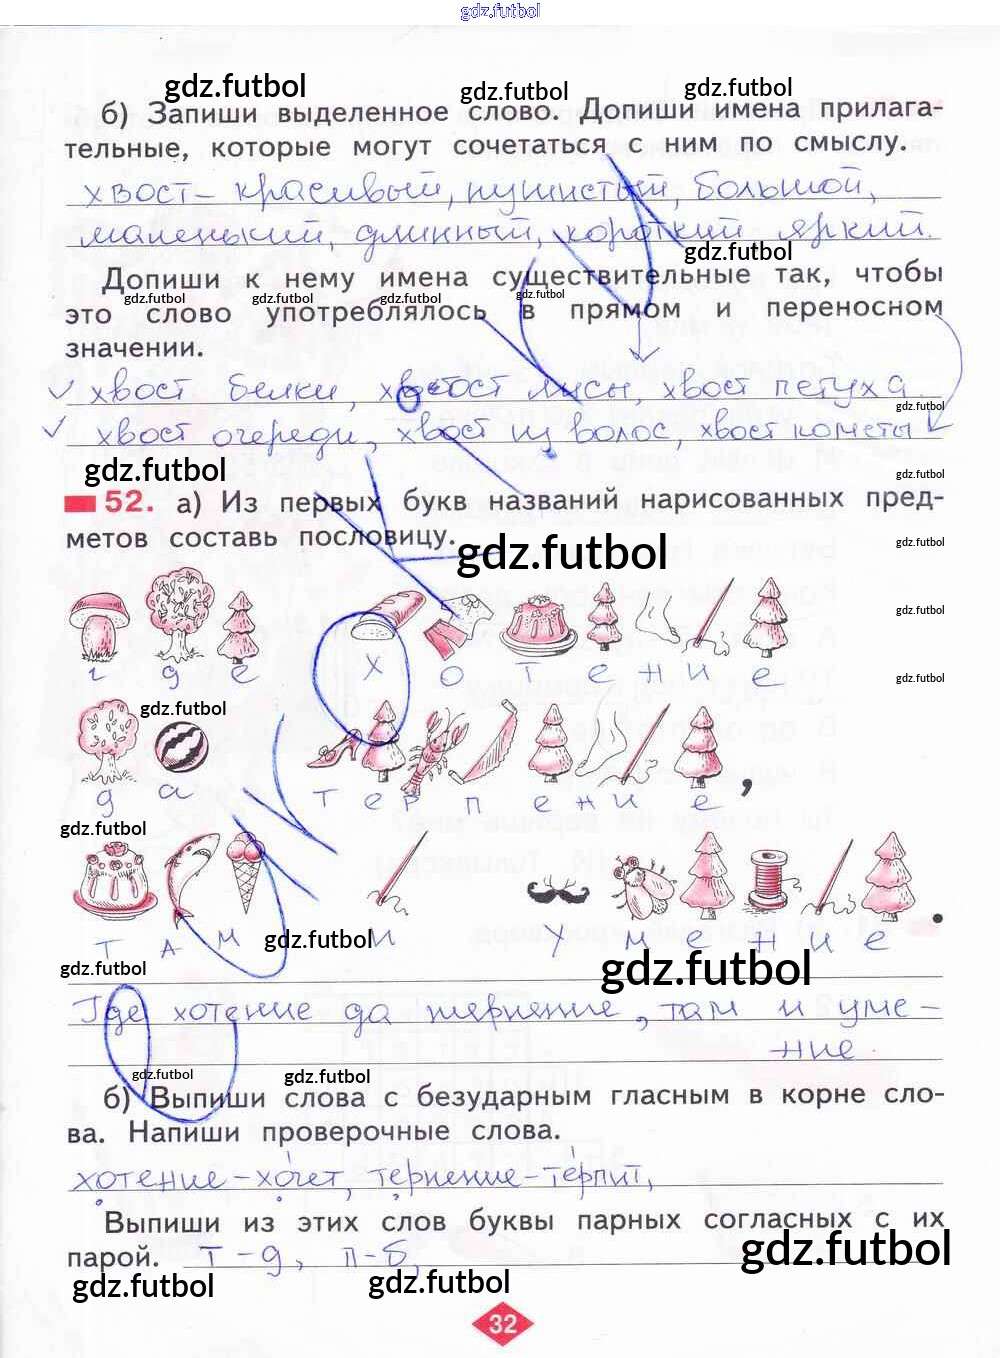 gdz.futbol
gdz.futbol gdz.futbol gdz.futbol
б) Запиши выделенное слово. Допиши имена прилага-
тельные, которые могут сочетаться с ним по смыслу.
хвост – красивый, пушистый, большой,
маленький, длинный, короткий яркий.
gdz.futbol
Допиши к нему имена существительные так, чтобы
gdz.futbol gdz.futbol gdz.futbol gdz.futbol
это слово употреблялось в прямом и переносном
значении.
хвост белки, хвост лисы, хвост петуха
gdz.futbol
хвост очереди, хвост из волос, хвост кометы
gdz.futbol gdz.futbol
52. а) Из первых букв названий нарисованных пред-
метов составь пословицу.
gdz.futbol gdz.futbol
gdz.futbol
г д е х о т е н и е
gdz.futbol
gdz.futbol
д а т е р п е н и е ,
gdz.futbol
.
т а м и у м е н и е
gdz.futbol
gdz.futbol gdz.futbol
Где хотение да терпение, там и уме-
ние.
gdz.futbol gdz.futbol
б) Выпиши слова с безударным гласным в корне сло-
ва. Напиши проверочные слова.
хотение – хочет, терпение – терпит,
Выпиши из этих слов буквы парных согласных с их
парой. т – д, п – б,
gdz.futbol
gdz.futbol gdz.futbol
32